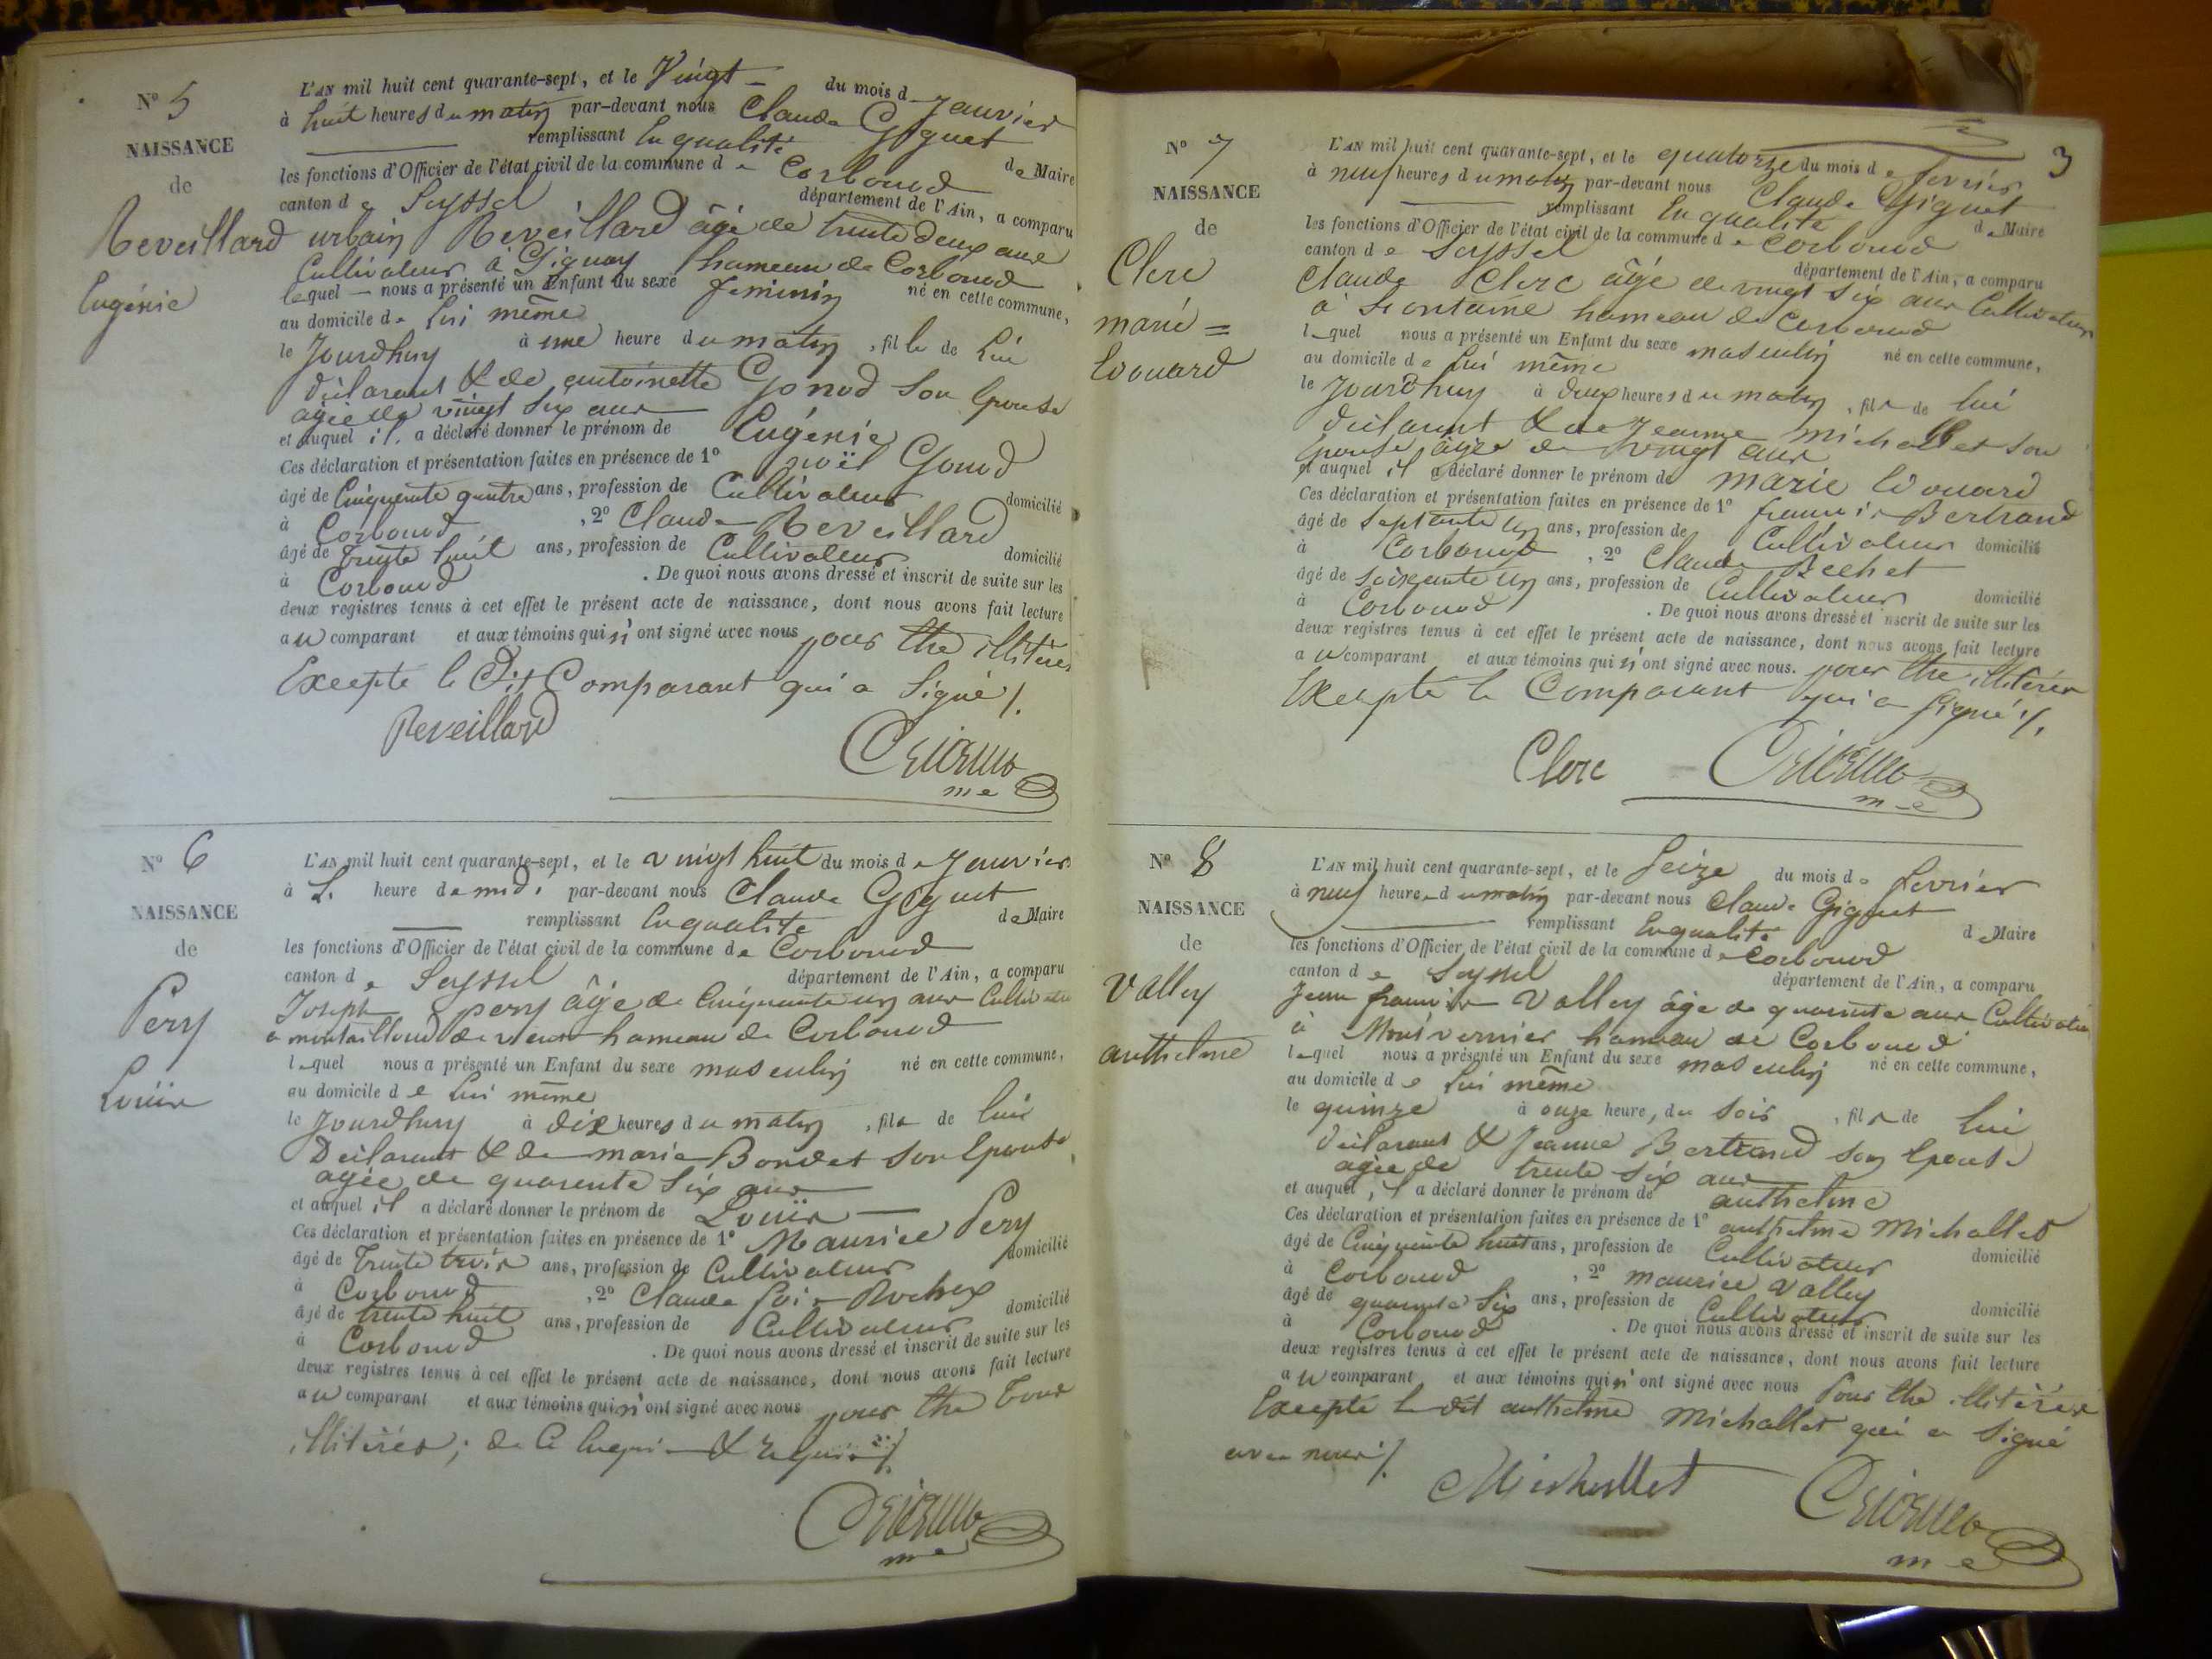 N° 5
NAISSANCE
de
Reveillard
Eugénie
L'AN mil huit cent quarante-sept, et le Vingt du mois de Janvier
à huit heures du matin par-devant nous Claude Giguet
remplissant En qualité de Maire
les fonctions d'Officier de l'état civil de la commune de Corbonod
canton de Seyssel département de l'Ain, a comparu
urbain Reveillard âgé de trente deux ans
Cultivateur à Gignay hameau de Corbonod
lequel nous a présenté un Enfant du sexe feminin né en cette commune,
au domicile de lui même
le Jourdhuy à une heure du matin, fille de lui
déclarant & de antoinette Gonod son Epouse
agée de vingt six ans
et auquel il a déclaré donner le prénom de Eugénie
Ces déclaration et présentation faites en présence de 1° noël Gonod
âgé de Cinquante quatre ans, profession de Cultivateur domicilié
à Corbonod, 2° Claude Reveillard
âgé de trente huit ans, profession de Cultivateur domicilié
à Corbonod. De quoi nous avons dressé et inscrit de suite sur les
deux registres tenus à cet effet le présent acte de naissance, dont nous avons fait lecture
au comparant et aux témoins qui n'ont signé avec nous pour être illitérés
Excepté le Dit Comparant qui a signé /.
Reveillard
me
N° 6
NAISSANCE
de
Pery
Louis
L'AN mil huit cent quarante-sept, et le vingt huit du mois de Janvier
à L. heure de midi par-devant nous Claude Giguet
remplissant En qualité de Maire
les fonctions d'Officier de l'état civil de la commune de Corbonod
canton de Seyssel département de l'Ain, a comparu
Joseph Pery âgé de Cinquante un ans Cultivateur
a montailloud hameau de Corbonod
lequel nous a présenté un Enfant du sexe masculin né en cette commune,
au domicile de lui même
le Jourdhuy à dix heures du matin, fils de lui
Déclarant & de marie Bondet son Epouse
agée de quarente six ans
et auquel il a déclaré donner le prénom de Louis
Ces déclaration et présentation faites en présence de 1° Maurice Pery
âgé de Trente trois ans, profession de Cultivateur domicilié
à Corbonod, 2° Claude Rochex
âgé de trente huit ans, profession de Cultivateur domicilié
à Corbonod. De quoi nous avons dressé et inscrit de suite sur les
deux registres tenus à cet effet le présent acte de naissance, dont nous avons fait lecture
au comparant et aux témoins qui n'ont signé avec nous pour être Tous
illitérés; de Ce Enquis & requis /.
me
3
N° 7
NAISSANCE
de
Clerc
marie =
Edouard
L'AN mil huit cent quarante-sept, et le quatorze du mois de fevrier
à neuf heures du matin par-devant nous Claude Giguet
remplissant En qualité de Maire
les fonctions d'Officier de l'état civil de la commune de Corbonod
canton de Seyssel département de l'Ain, a comparu
Claude Clerc âgé de vingt six ans Cultivateur
à hameau de Corbonod
lequel nous a présenté un Enfant du sexe masculin né en cette commune,
au domicile de lui même
le Jourdhuy à deux heures du matin, fils de lui
déclarant & de Jeanne Michallet son
Epouse âgée de vingt ans
et auquel il a déclaré donner le prénom de marie Edouard
Ces déclaration et présentation faites en présence de 1° francois Bertrand
âgé de Septante un ans, profession de Cultivateur domicilié
à Corbonod, 2° Claude Bechet
âgé de soixante un ans, profession de Cultivateur domicilié
à Corbonod. De quoi nous avons dressé et inscrit de suite sur les
deux registres tenus à cet effet le présent acte de naissance, dont nous avons fait lecture
au comparant et aux témoins qui n'ont signé avec nous. pour être illitérés
Excepté le Comparant qui a signé /.
Clerc
me
N° 8
NAISSANCE
de
Valley
anthelme
L'AN mil huit cent quarante-sept, et le Seize du mois de fevrier
à neuf heures du matin par-devant nous Claude Giguet
remplissant En qualité de Maire
les fonctions d'Officier de l'état civil de la commune de Corbonod
canton de Seyssel département de l'Ain, a comparu
Jean francois Valley âgé de quarente ans Cultivateur
à Montvernier hameau de Corbonod
lequel nous a présenté un Enfant du sexe masculin né en cette commune,
au domicile de lui même
le quinze à onze heure, du soir, fils de lui
déclarant & Jeanne Bertrand son Epouse
agée de trente six ans
et auquel il a déclaré donner le prénom de anthelme
Ces déclaration et présentation faites en présence de 1° anthelme Michallet
âgé de Cinquante huit ans, profession de Cultivateur domicilié
à Corbonod, 2° maurice Valley
âgé de quarente six ans, profession de Cultivateur domicilié
à Corbonod. De quoi nous avons dressé et inscrit de suite sur les
deux registres tenus à cet effet le présent acte de naissance, dont nous avons fait lecture
au comparant et aux témoins qui n'ont signé avec nous Pour être illitérés
Excepté le dit anthelme Michallet qui a signé
avec nous /.
Michallet
me